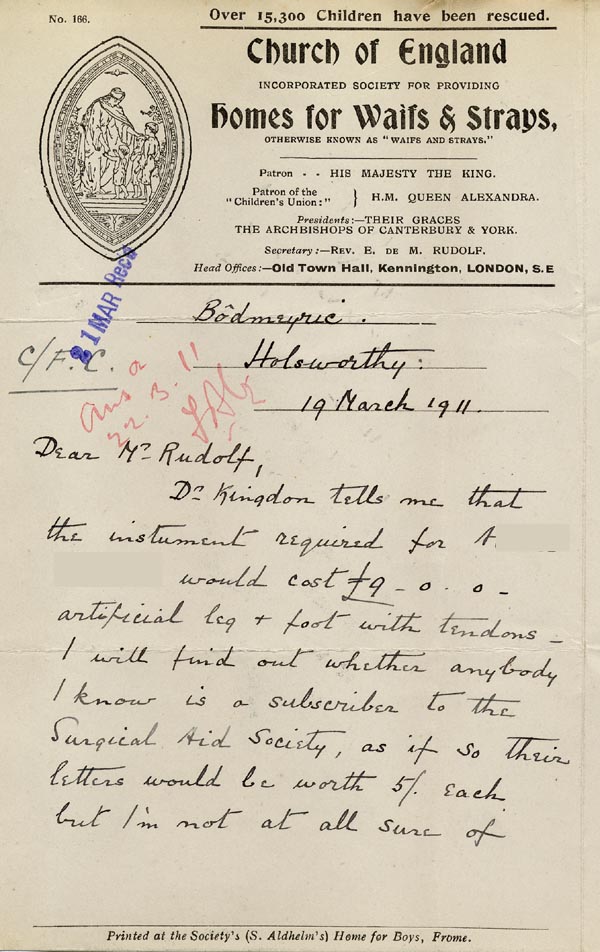 No. 166.
Over 15,300 Children have been rescued.
Church of England
INCORPORATED SOCIETY FOR PROVIDING
Homes for Waifs & Strays,
OTHERWISE KNOWN AS "WAIFS AND STRAYS."
Patron - - HIS MAJESTY THE KING.
Patron of the "Children's Union:" } H.M. QUEEN ALEXANDRA.
Presidents:—THEIR GRACES
THE ARCHBISHOPS OF CANTERBURY & YORK.
Secretary:—REV. E. DE M. RUDOLF.
Head Offices:—Old Town Hall, Kennington, LONDON, S.E
21 MAR Recd
Bôdmeyric.
C/F.C.
Holsworthy:
Ans a
22.3.11
19 March 1911.
Dear Mr Rudolf,
Dr Kingdon tells me that
the instument required for A
would cost £9-0.0-
artificial leg + foot with tendons -
I will find out whether anybody
I know is a subscriber to the
Surgical Aid Society, as if so their
letters would be worth 5/. each
but I'm not at all sure of
Printed at the Society's (S. Aldhelm's) Home for Boys, Frome.